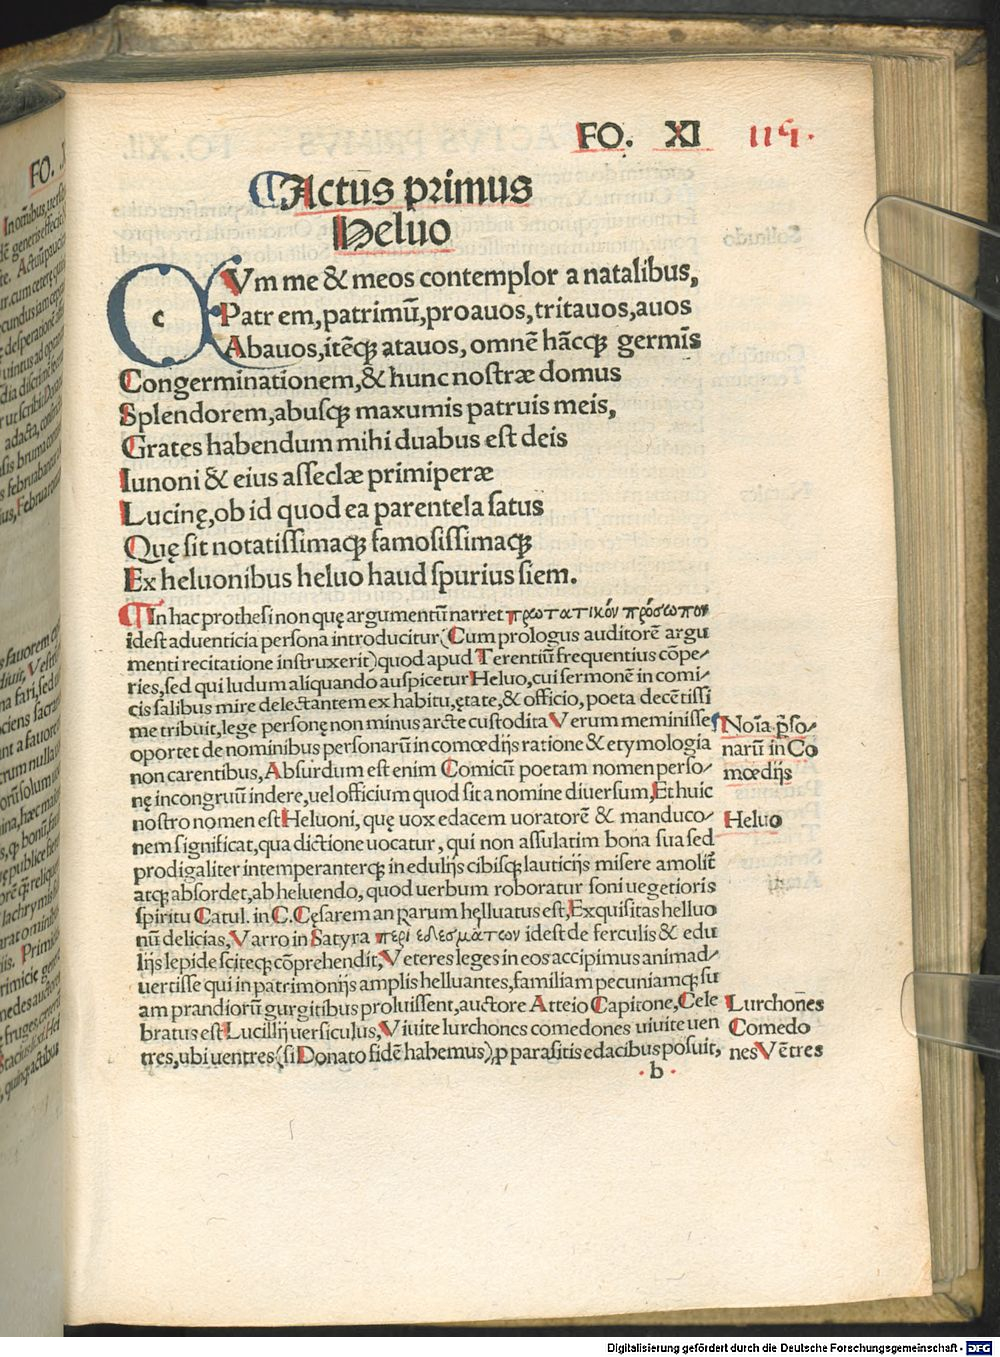 FO. XI 115.
Actus primus
Heluo
CVm me & meos contemplor a natalibus,
Patrem, patrimũ, proauos, tritauos, auos
Abauos, itẽqꝫ atauos, omnẽ hãcqꝫ germĩs
Congerminationem, & hunc nostræ domus
Splendorem, abusqꝫ maxumis patruis meis,
Grates habendum mihi duabus est deis
Iunoni & eius asseclæ primiperæ
Lucinę, ob id quod ea parentela satus
Quę sit notatissimaqꝫ famosissimaqꝫ
Ex heluonibus heluo haud spurius siem.
¶In hac prothesi non quę argumentũ narret πρωτατικόν πρόσωπον
idest aduenticia persona introducitur (Cum prologus auditorẽ argu
menti recitatione instruxerit) quod apud Terentiũ frequentius cõpe/
ries, sed qui ludum aliquando auspicetur Heluo, cui sermonẽ in comi/
cis salibus mire delectantem ex habitu, ętate, & officio, poeta decẽtissi
me tribuit, lege personę non minus arcte custodita Verum meminisse
oportet de nominibus personarũ in comœdijs ratione & etymologia
non carentibus, Absurdum est enim Comicũ poetam nomen perso/
nę incongruũ indere, uel officium quod sit a nomine diuersum, Et huic
nostro nomen est Heluoni, quę uox edacem uoratorẽ & manduco/
nem significat, qua dictione uocatur, qui non assulatim bona sua sed
prodigaliter intemperanterqꝫ in edulijs cibisqꝫ lauticijs misere amolit̃
atqꝫ absordet, ab heluendo, quod uerbum roboratur soni uegetioris
spiritu Catul. in C. Cęsarem an parum hęlluatus est, Exquisitas helluo
nũ delicias, Varro in Satyra περι εδεσμάτων idest de ferculis & edu
lijs lepide sciteqꝫ cõprehendit, Veteres leges in eos accipimus animad/
uertisse qui in patrimonijs amplis helluantes, familiam pecuniamqꝫ su
am prandiorũ gurgitibus proluissent, auctore Atteio Capitone, Cele
bratus est Lucillij uersiculus, Viuite lurchones comedones uiuite uen
tres, ubi uentres (si Donato fidẽ habemus) ꝓ parasitis edacibus posuit,
Noĩa ꝑso/
narũ in Co
mœdijs
Heluo
Lurchoñes
Comedo
nes Vẽtres
.b.
Digitalisierung gefördert durch die Deutsche Forschungsgemeinschaft - DFG